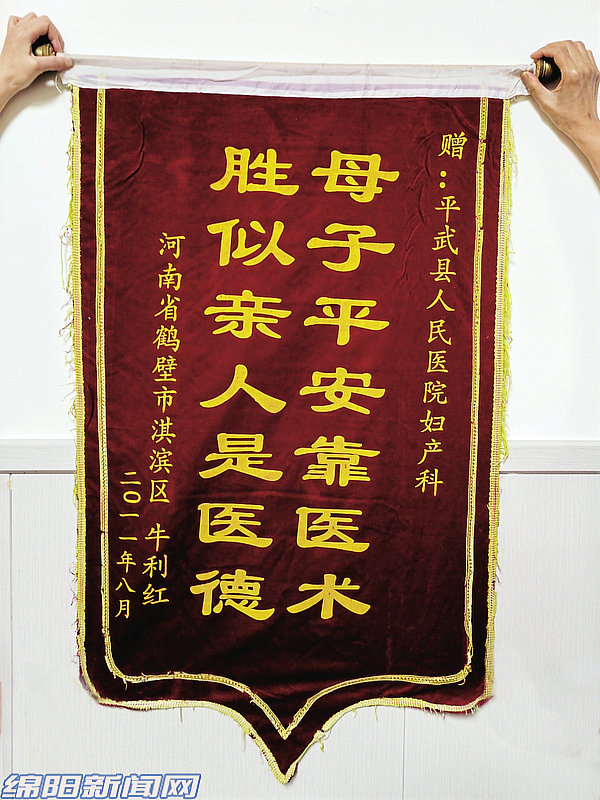 赠：平武县人民医院妇产科
母子平安靠医术
胜似亲人是医德
河南省鹤壁市淇滨区 牛利红
二〇一一年八月
绵阳新闻网